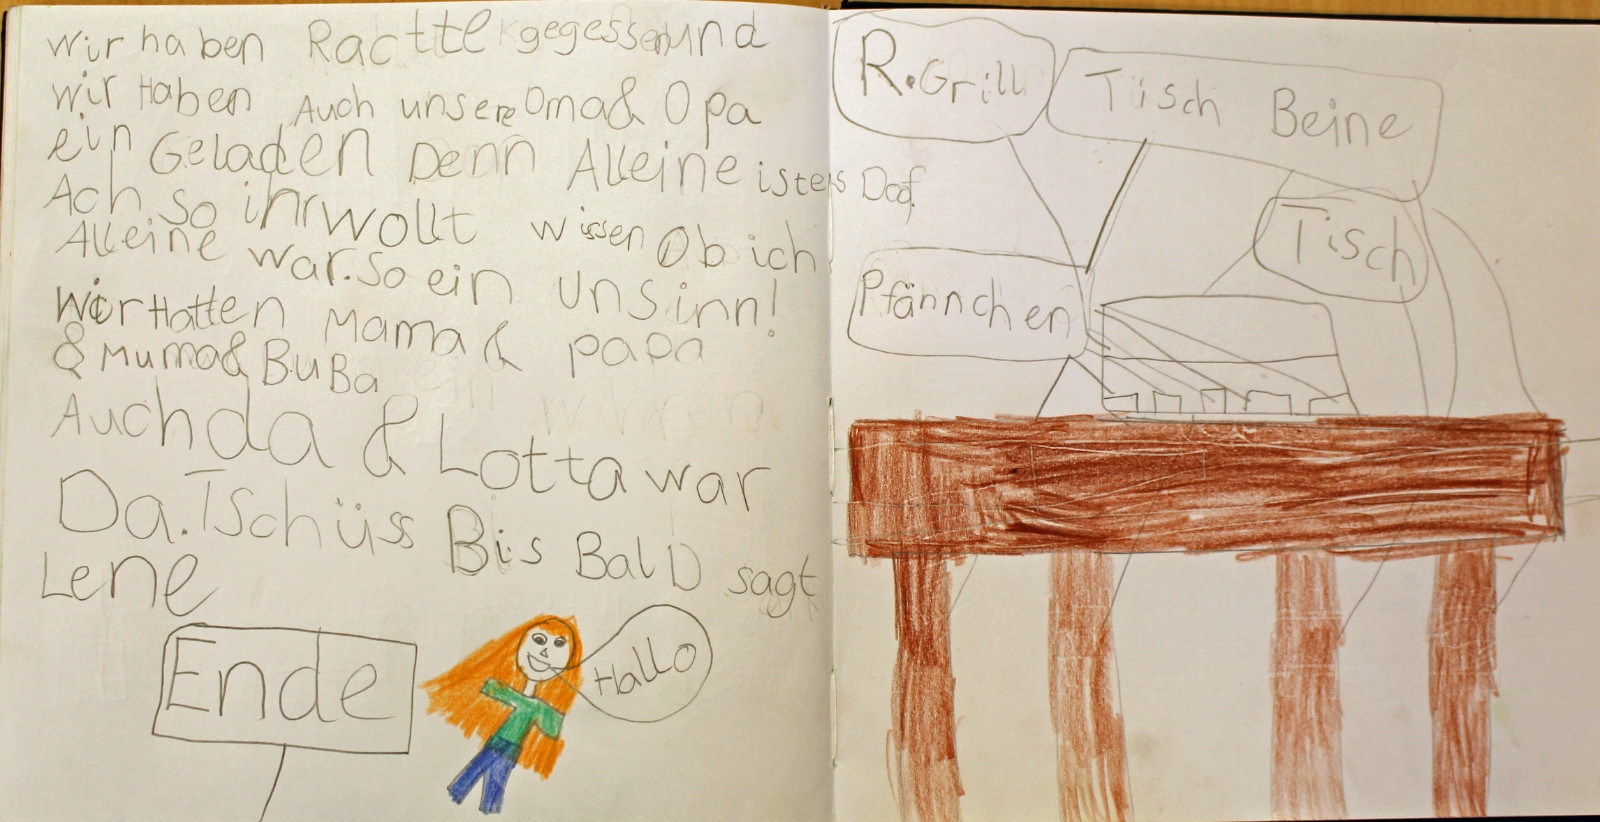 wir haben Racttle gegessen und
wir Haben Auch unsere Oma & Opa
ein Geladen Denn Alleine ist es Dof.
Ach so ihr wollt wissen Ob ich
Alleine war. so ein unsinn!
wir Hatten Mama & papa
& Muma & BuBa
Auch da & Lotta war
Da. Tschüss Bis BalD sagt
Lene
Ende
Hallo
R. Grill
Tisch Beine
Tisch
Pfännchen